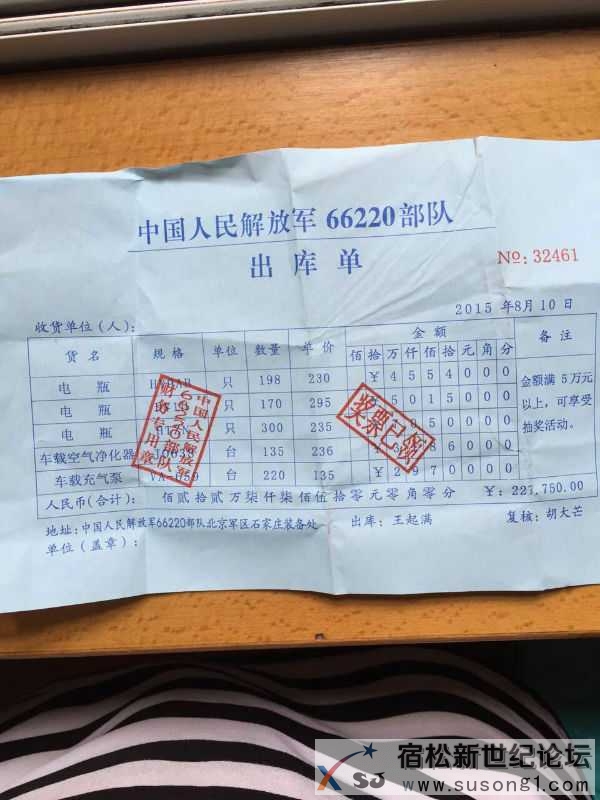 中国人民解放军 66220部队
出 库 单
№: 32461
2015 年8月10日
收货单位(人):
货 名 规 格 单位 数量 单 价 金 额 备 注
佰 拾 万 仟 佰 拾 元 角 分
电 瓶 只 198 230 ¥ 4 5 5 4 0 0 0
电 瓶 只 170 295 0 1 5 0 0 0
电 瓶 只 300 235 0 0 0
车载空气净化器 台 135 236 6 0 0 0
车载充气泵 台 220 135 ¥ 2 9 7 0 0 0 0
金额满 5万元
以上,可享受
抽奖活动。
人民币(合计): 佰贰拾贰万柒仟柒佰伍拾零元零角零分 ¥: 227,750.00
地址:中国人民解放军66220部队北京军区石家庄装备处 出库: 王起满 复核: 胡大芒
单位(盖章):
中国人民解放军
财务专用章
奖票已领
宿松新世纪论坛
XSJ
www.susong1.com